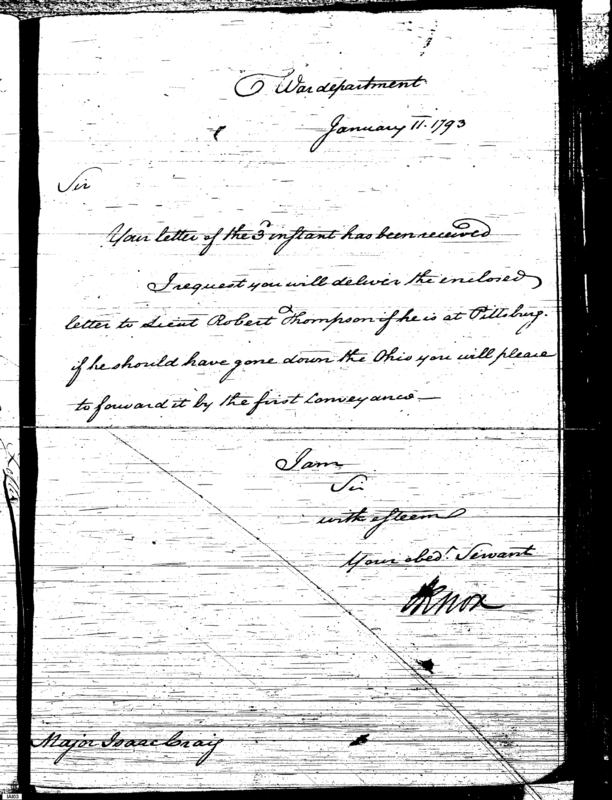 War department
January 11. 1793
Sir
Your letter of the 3d instant has been received
I request you will deliver the enclosed
letter to Lieut Robert Thompson if he is at Pittsburg.
if he should have gone down the Ohio you will please
to forward it by the first conveyance —
I am
Sir
with esteem
Your obedt. Servant
HKnox
Major Isaac Craig